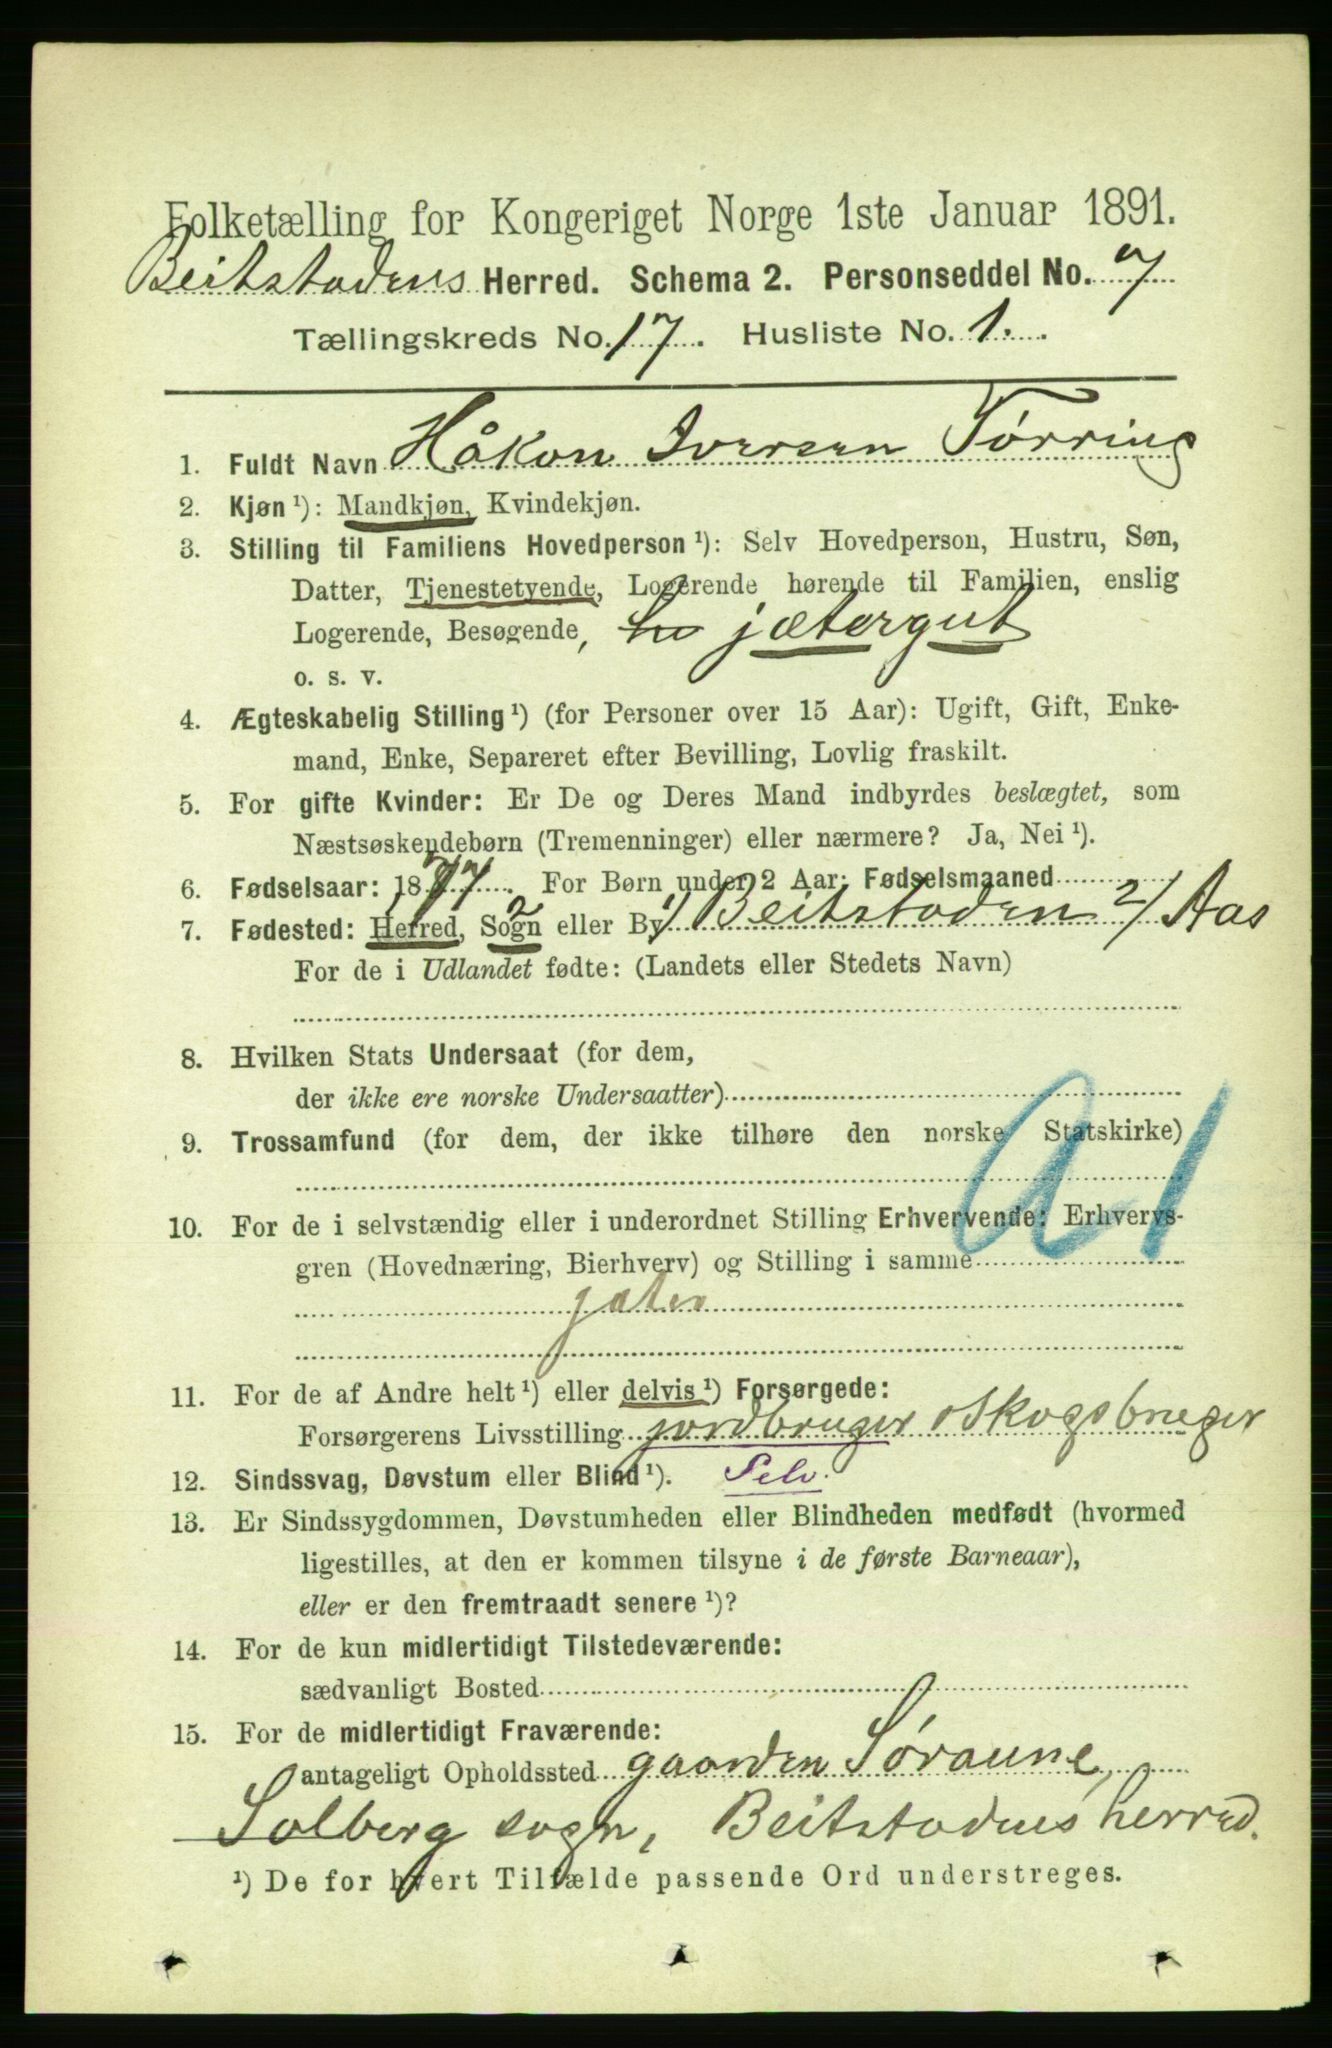 Folketælling for Kongeriget Norge 1ste Januar 1891.
Beitstadens Herred. Schema 2. Personseddel No. 7
Tællingskreds No. 17. Husliste No. 1.
1. Fuldt Navn Håkon Iversen Tørring
2. Kjøn ¹): Mandkjøn, Kvindekjøn.
3. Stilling til Familiens Hovedperson ¹): Selv Hovedperson, Hustru, Søn,
Datter, Tjenestetyende, Logerende hørende til Familien, enslig
Logerende, Besøgende, jætergut
o. s. v.
4. Ægteskabelig Stilling ¹) (for Personer over 15 Aar): Ugift, Gift, Enke-
mand, Enke, Separeret efter Bevilling, Lovlig fraskilt.
5. For gifte Kvinder: Er De og Deres Mand indbyrdes beslægtet, som
Næstsøskendebørn (Tremenninger) eller nærmere? Ja, Nei ¹).
6. Fødselsaar: 1877. For Børn under 2 Aar: Fødselsmaaned
7. Fødested: Herred, Sogn eller By 1/ Beitstaden 2/ Aas
For de i Udlandet fødte: (Landets eller Stedets Navn)
8. Hvilken Stats Undersaat (for dem,
der ikke ere norske Undersaatter)
9. Trossamfund (for dem, der ikke tilhøre den norske Statskirke)
10. For de i selvstændig eller i underordnet Stilling Erhvervende: Erhvervs-
gren (Hovednæring, Bierhverv) og Stilling i samme
jæter
11. For de af Andre helt ¹) eller delvis ¹) Forsørgede:
Forsørgerens Livsstilling jordbruger o skogsbruger
12. Sindssvag, Døvstum eller Blind ¹). Selv.
13. Er Sindssygdommen, Døvstumheden eller Blindheden medfødt (hvormed
ligestilles, at den er kommen tilsyne i de første Barneaar),
eller er den fremtraadt senere ¹)?
14. For de kun midlertidigt Tilstedeværende:
sædvanligt Bosted
15. For de midlertidigt Fraværende:
antageligt Opholdssted gaarden Søraune,
Solberg sogn, Beitstadens herred.
¹) De for hvert Tilfælde passende Ord understreges.